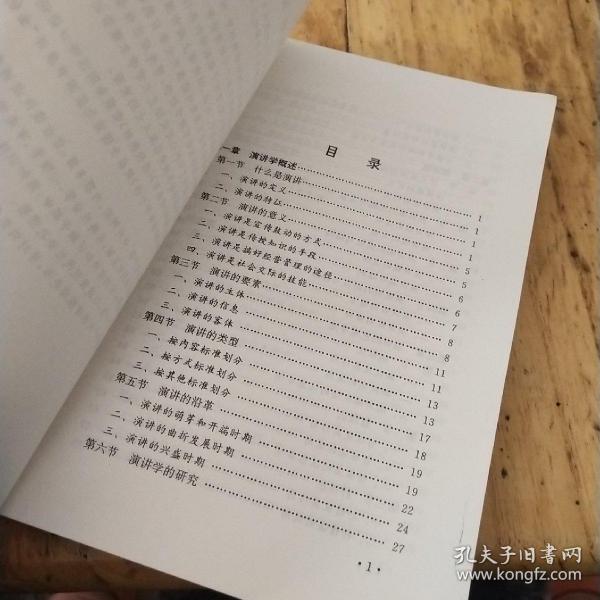 目 录
一章 演讲学概述……1
第一节 什么是演讲……1
一、演讲的定义……1
二、演讲的特征……1
第二节 演讲的意义……5
一、演讲是宣传鼓动的方式……5
二、演讲是传授知识的手段……6
三、演讲是搞好经营管理的途径……6
四、演讲是社会交际的技能……7
第三节 演讲的要素……8
一、演讲的主体……8
二、演讲的信息……11
三、演讲的客体……11
第四节 演讲的类型……13
一、按内容标准划分……13
二、按方式标准划分……17
三、按其他标准划分……18
第五节 演讲的沿革……19
一、演讲的萌芽和开端时期……19
二、演讲的曲折发展时期……22
三、演讲的兴盛时期……24
第六节 演讲学的研究……27
·1·
孔夫子旧书网
www.kongfz.com